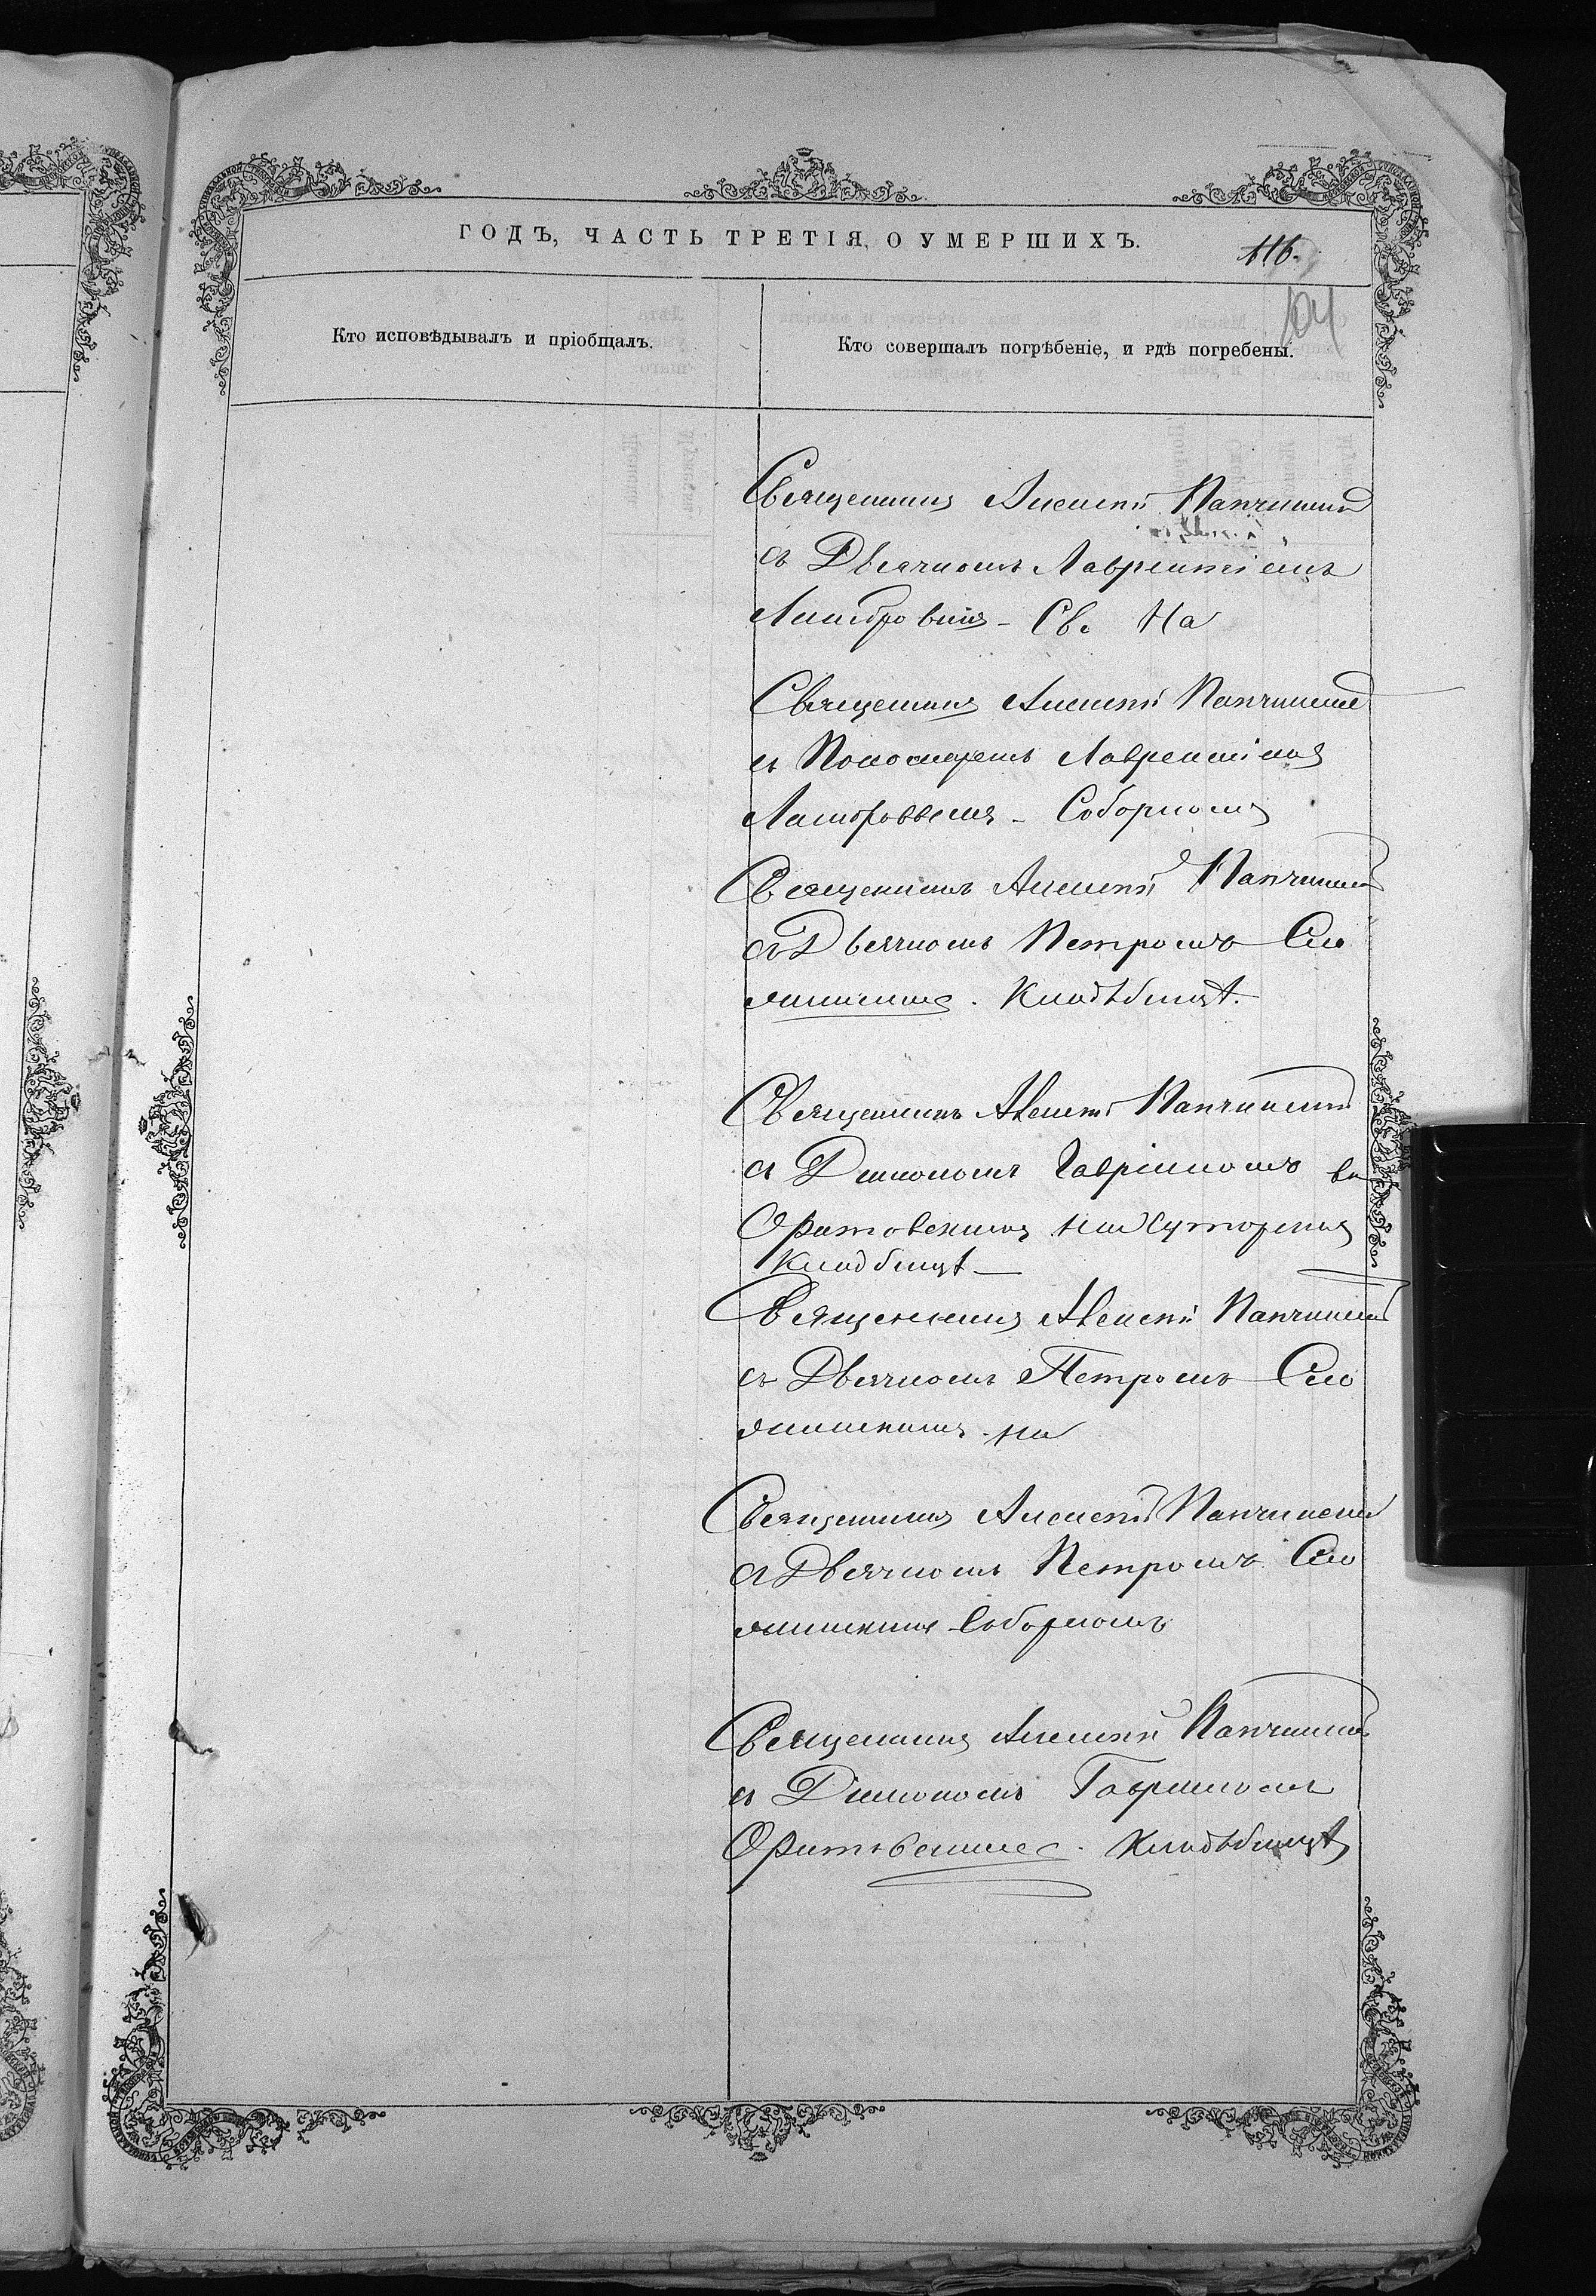 ГОДЪ, ЧАСТЬ ТРЕТІЯ, О УМЕРШИХЪ.
116.
104
Кто исповѣдывалъ и пріобщалъ.
Кто совершалъ погрѣбеніе, и гдѣ погребены.
Священникъ Алексѣй Папчинскій
съ Дьячкомъ Лаврентіемъ
Св. На
Священникъ Алексѣй Папчинскій
съ Пономаремъ Лаврентіемъ
Соборномъ
Священникъ Алексѣй Папчинскій
съ Дьячкомъ Петромъ Сло
минскимъ. Кладѣбищѣ.
Священникъ Алексѣй Папчинскій
съ Діакономъ Гавріиломъ
Оратовскимъ на
Кладбищѣ —
Священникъ Алексѣй Папчинскій
съ Дьячкомъ Петромъ Сло
минскимъ. на
Священникъ Алексѣй Папчинскій
съ Дьячкомъ Петромъ Сло
минскимъ Соборномъ
Священникъ Алексѣй Папчинскій
съ Діакономъ Гавріиломъ
Оратовскимъ. Кладѣбищѣ